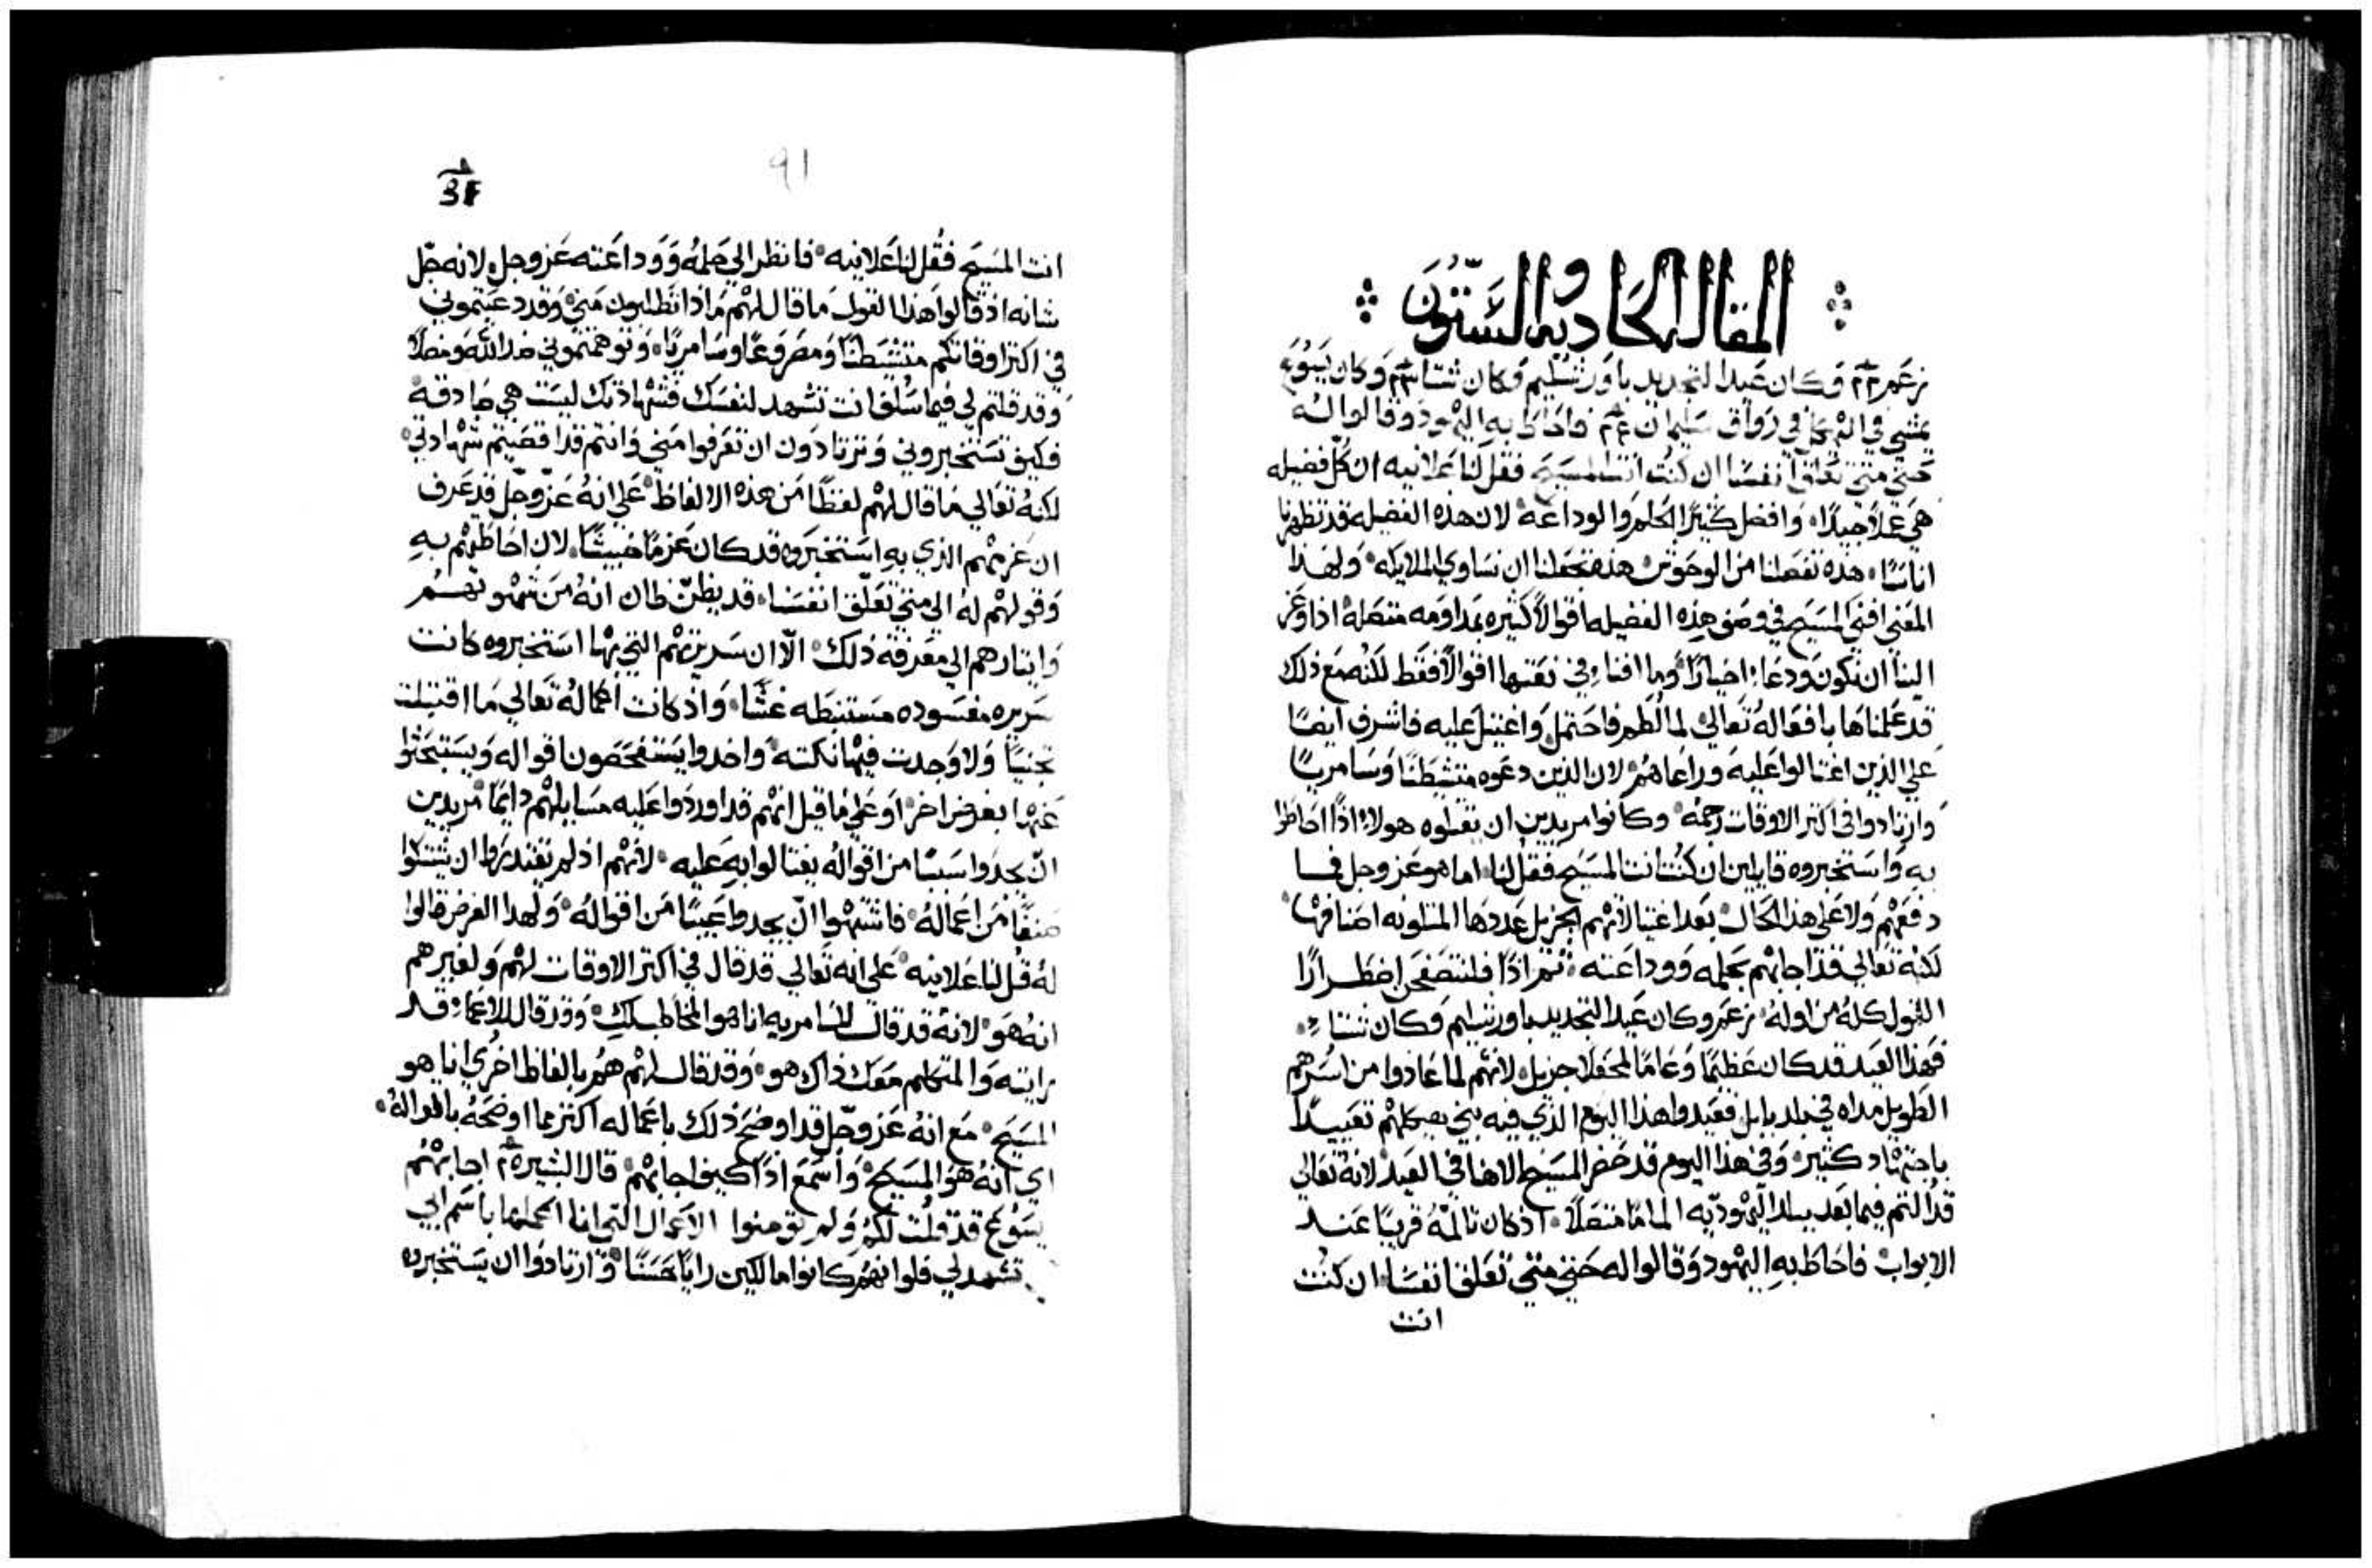 المقاله الحاديه والستون
زعم وكان عيد التجديد باورشليم وكان شتا وكان يسوع
يمشي في الهيكل في رواق سليمان فاحاط به اليهود وقالوا له
حتي متي تعلق انفسنا ان كنت انت المسيح فقل لنا علانيه ان كل فضيله
هي عملا جيدا، وافضل كثيرا الحلم والوداعه لان هذه الفضيله قد تظهرنا
اناسا، هذه تفصلنا من الوحوش هذه تجعلنا ان نساوي الملايكه ولهذا
المعني افني المسيح في وصف هذه الفضيله اقوالا كثيره بمداومه متصله اذا وعز
الينا ان نكون ودعاء اخيارا، وما افناء في نعتها اقوالا فقط لكنه مع ذلك
قد علمناها بافعاله تعالي لما لطم فاحتمل واغتيل عليه فاشرف ايضا
علي الذين اغتالوا عليه وراعاهم لان الذين دعوه متشيطنا وسامريا
وارتادوا في اكثر الاوقات رجمه وكانوا مريدين ان يقتلوه هولاء اذا احاطوا
به واستخبروه قايلين ان كنت انت المسيح فقل لنا، اما هو عز وجل فما
دفعهم ولا علي هذا الحال بعد اغتيالاتهم الجزيل عددها المتلونه اصنافها
لكنه تعالي قد اجابهم بحلمه ووداعته ثم اذا فلنتصفحن اضطرارا
القول كله من اوله زعم وكان عيد التجديد باورشليم وكان شتاء
فهذا العيد قد كان عظيما وعاما لمحفلا جزيل لانهم لما عادوا من اسرهم
الطويل مداه في بلد بابل فعيدوا هذا اليوم الذي فيه بني هيكلهم تعييدا
باجتهاد كثير وفي هذا اليوم قد حضر المسيح الاهنا في العيد لانه تعالي
قد التم فيما بعد ببلد اليهوديه الماما متصلا اذ كان تالمه قريبا عند
الابواب فاحاط به اليهود وقالوا له حتي متي تعلق انفسنا ان كنت
انت
91
انت المسيح فقل لنا علانيه فانظر الي حلمه ووداعته عز وجل لانه جل
شانه اذ قالوا هذا القول ما قال لهم ماذا تطلبون مني وقد دعيتموني
في اكثر اوقاتكم متشيطنا ومصروعا وسامريا، وتوهمتموني ضد الله ومضلا
وقد قلتم لي فيما سلف انت تشهد لنفسك فشهاذتك ليست هي صادقه
فكيف تستخبروني وترتادون ان تعرفوا مني وانتم قد اقصيتم شهادتي
لكنه تعالي ما قال لهم لفظا من هذه الالفاظ علي انه عز وجل قد عرف
ان عزمهم الذي به استخبروه قد كان عزما خبيثا، لان احاطتهم به
وقولهم له الي متي تعلق انفسنا، قد يظن ظان انه من شهوتهم
وايثارهم الي معرفه ذلك الا ان سريرتهم التي بها استخبروه كانت
سريره مفسوده مستنبطه غشا، واذ كانت اعماله تعالي ما اقتبلت
تجنيا ولا وجدت فيها نكته واخدوا يستفحصون اقواله ويستبحثوا
عنها بغرض اخر او علي ما قيل انهم قد اوردوا عليه مسايلهم دايما مريدين
ان يجدوا سببا من اقواله يغتالوا به عليه لانهم اذ لم يقتدروا ان يثبتوا
صنفا من اعماله فاشتهوا ان يجدوا عيبا من اقواله ولهدا الغرض قالوا
له قل لنا علانيه علي انه تعالي قد قال في اكثر الاوقات لهم ولغيرهم
انه هو لانه قد قال للسامريه انا هو المخاطب لك وقد قال للاعما قد
رايته والمتكلم معك ذاك هو وقد قال لهم هم بالفاظ اخري انا هو
المسيح مع انه عز وجل قد اوضح ذلك باعماله اكثر مما اوضحه باقواله
اي انه هو المسيح واسمع اذا كيف اجابهم قال البشير اجابهم
يسوع قد قلت لكم ولم تومنوا الاعمال التي انا اعملها باسم ابي
تشهد لي فلو انهم كانوا مالكين رايا حسنا وارتادوا ان يستخبروه